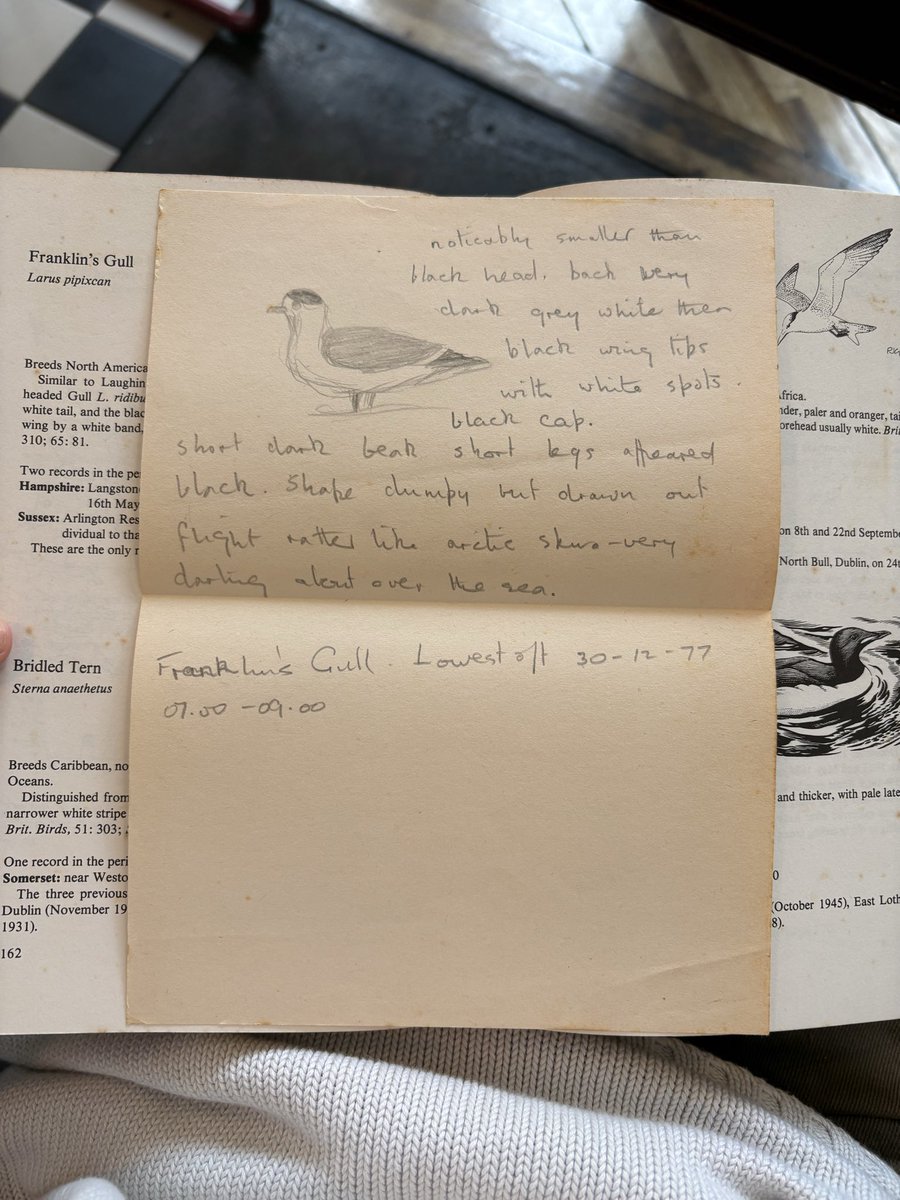 Franklin's Gull
Larus pipixcan
Breeds North America
Similar to Laughin
headed Gull L. ridibu
white tail, and the blac
wing by a white band,
310; 65: 81.
Two records in the pe
Hampshire: Langston
16th May
Sussex: Arlington Res
dividual to tha
These are the only r
Bridled Tern
Sterna anaethetus
Breeds Caribbean, no
Oceans.
Distinguished from
narrower white stripe
Brit. Birds, 51: 303;
One record in the peri
Somerset: near Westo
The three previous
Dublin (November 19
1931).
162
noticably smaller than
black head. back very
dark grey white then
black wing tips
with white spots.
black cap.
short dark beak short legs appeared
black. Shape dumpy but drawn out
flight rather like arctic skua - very
darting about over the sea.
Franklin's Gull. Lowestoft 30-12-77
07.00 - 09.00
Africa.
nder, paler and oranger, tai
orehead usually white. Brit
on 8th and 22nd Septembe
North Bull, Dublin, on 24t
and thicker, with pale late
0
(October 1945), East Loth
8).